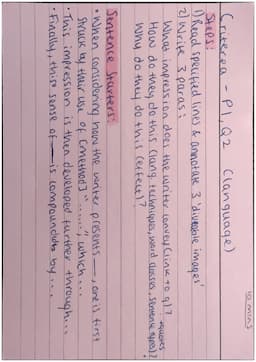 Criterea - P1, Q2 (language)
10 mins
Steps:
1) Read specified lines & annotate 3 'diverse images'
2) Write 3 paras:
What impression does the writer convey (link to q)?
How do they do this (lang. techniques, word classes, sentence types)?
quotes
Why do they do this (effect)?
Sentence Starters:
• When considering how the writer presents —, one is first
struck by their use of (method) "......", which...
• This impression is then developed further through...
• Finally, this sense of — is compounded by...